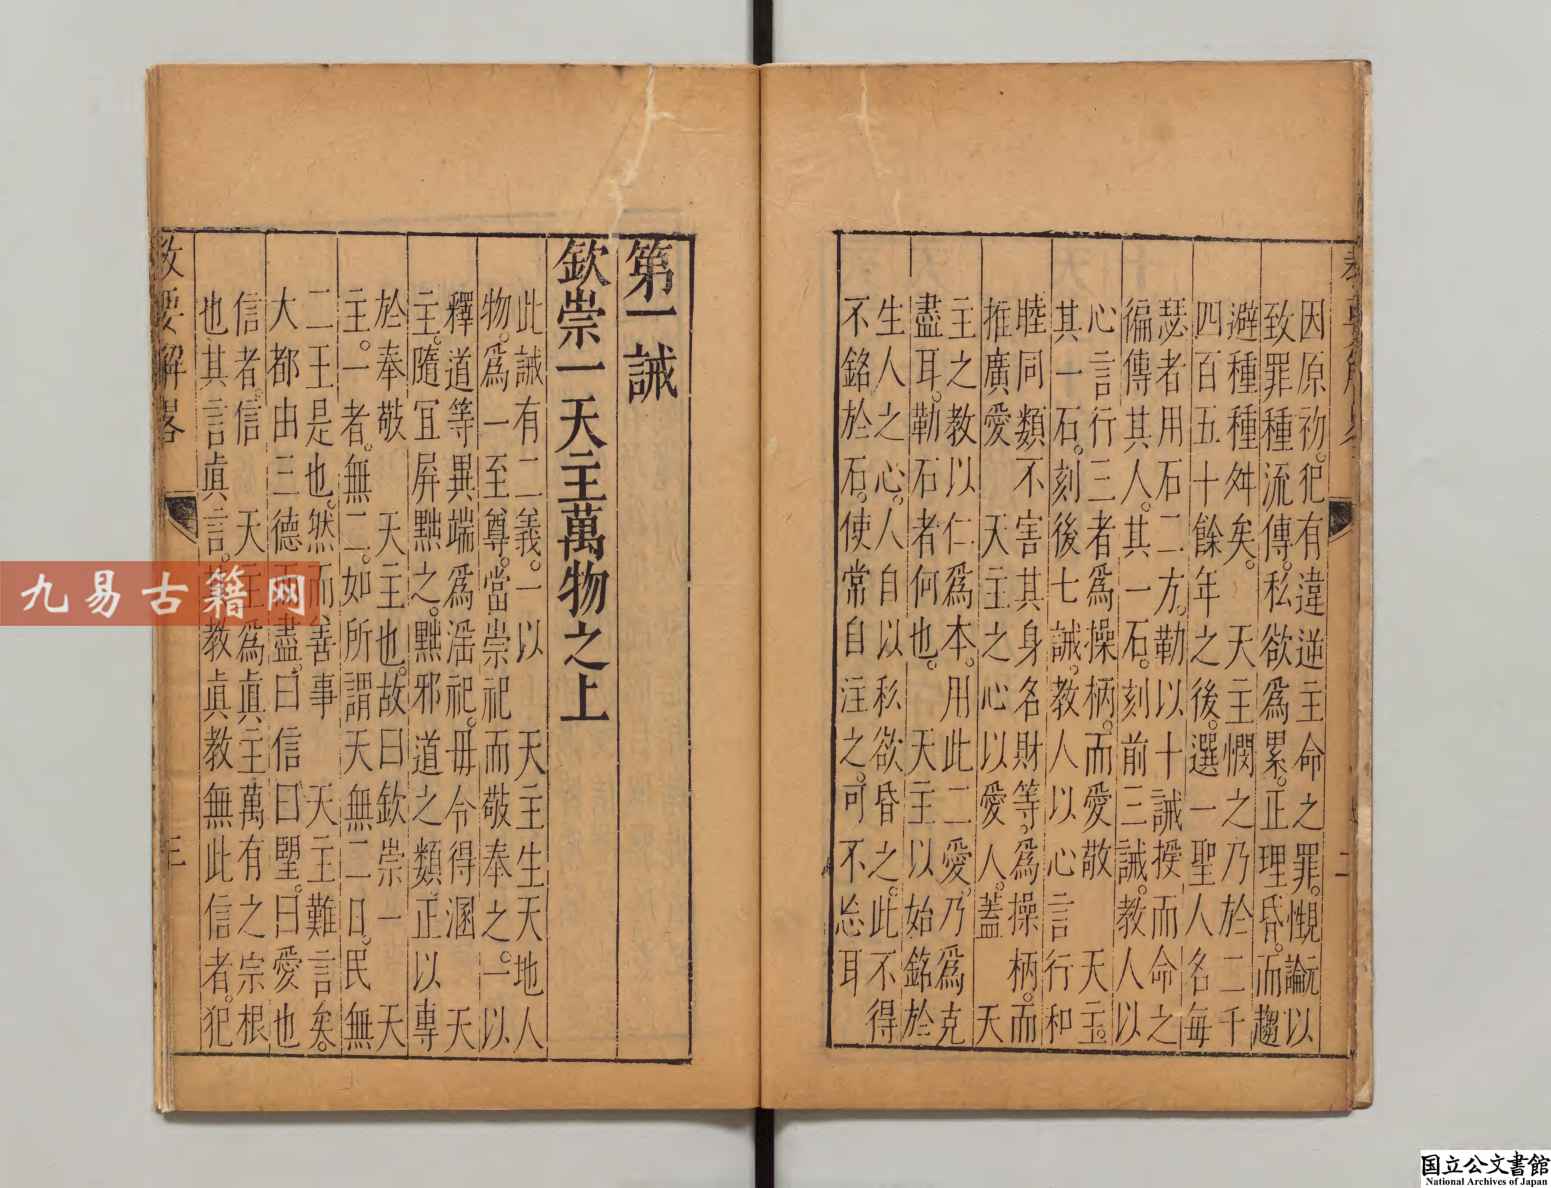 因原初。犯有違逆主命之罪。愰論以
致罪種流傳。私欲爲累。正理昏。而趨
避種種舛矣。 天主憫之乃於二千
四百五十餘年之後。選一聖人名每
瑟者用石二方。勒以十誡授而命之
徧傳其人。其一石。刻前三誡。教人以
心言行三者爲操柄。而愛敬 天主。
其一石。刻後七誡。教人以心言行和
睦同類不害其身名財等。爲操柄。而
推廣愛 天主之心以愛人。蓋 天
主之教以仁爲本。用此二愛。乃爲克
盡耳。勒石者何也。 天主以始銘於
生人之心。人自以私欲昏之。此不得
不銘於石。使常自注之。可不忘耳
二
第一誡
欽崇一天主萬物之上
此誡有二義。一以 天主生天地人
物。爲一至尊。當崇祀而敬奉之。一以
釋道等異端爲淫祀。毋令得溷 天
主。隨宜屏黜之。黜邪道之類。正以專
於奉敬 天主也。故曰欽崇一 天
主。一者。無二。如所謂天無二日。民無
二王是也。然而善事 天主難言矣。
大都由三德而盡。曰信曰望。曰愛也
信者。信 天主爲眞主萬有之宗根
也其言眞言。教眞教無此信者。犯
教要解畧
三
九易古籍网
国立公文書館
National Archives of Japan